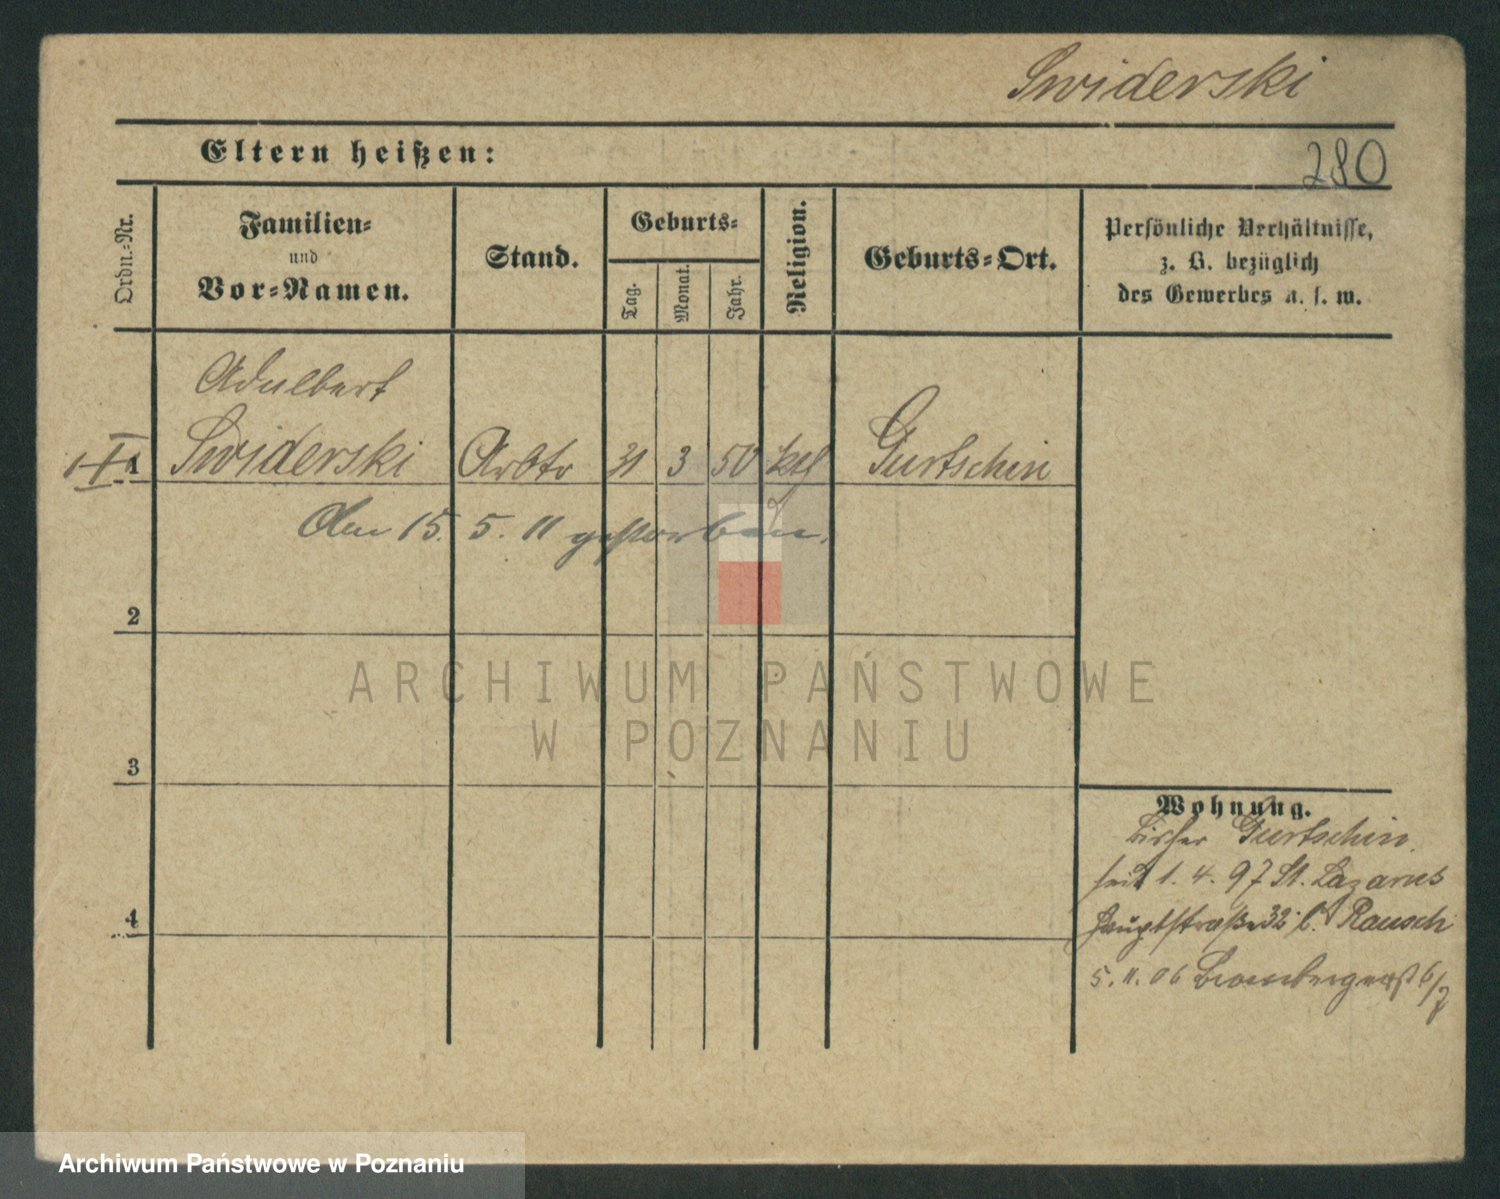 Swiderski
Eltern heißen:
280
Ordn.-Nr.
Familien-
und
Vor-Namen.
Stand.
Geburts-
Tag.
Monat.
Jahr.
Religion.
Geburts-Ort.
Persönliche Verhältnisse,
z. B. bezüglich
des Gewerbes u. s. w.
Adalbert
1 Swiderski Arbtr 31 3 50 ktl Gurtschin
Am 15. 5. 11 gestorben.
2
3
4
Wohnung.
bisher Gurtschin.
seit 1. 4. 97 St. Lazarus
Hauptstraße 32 b. Rausch
5. 11. 06 Brombergerst 6/7
ARCHIWUM PAŃSTWOWE
W POZNANIU
Archiwum Państwowe w Poznaniu